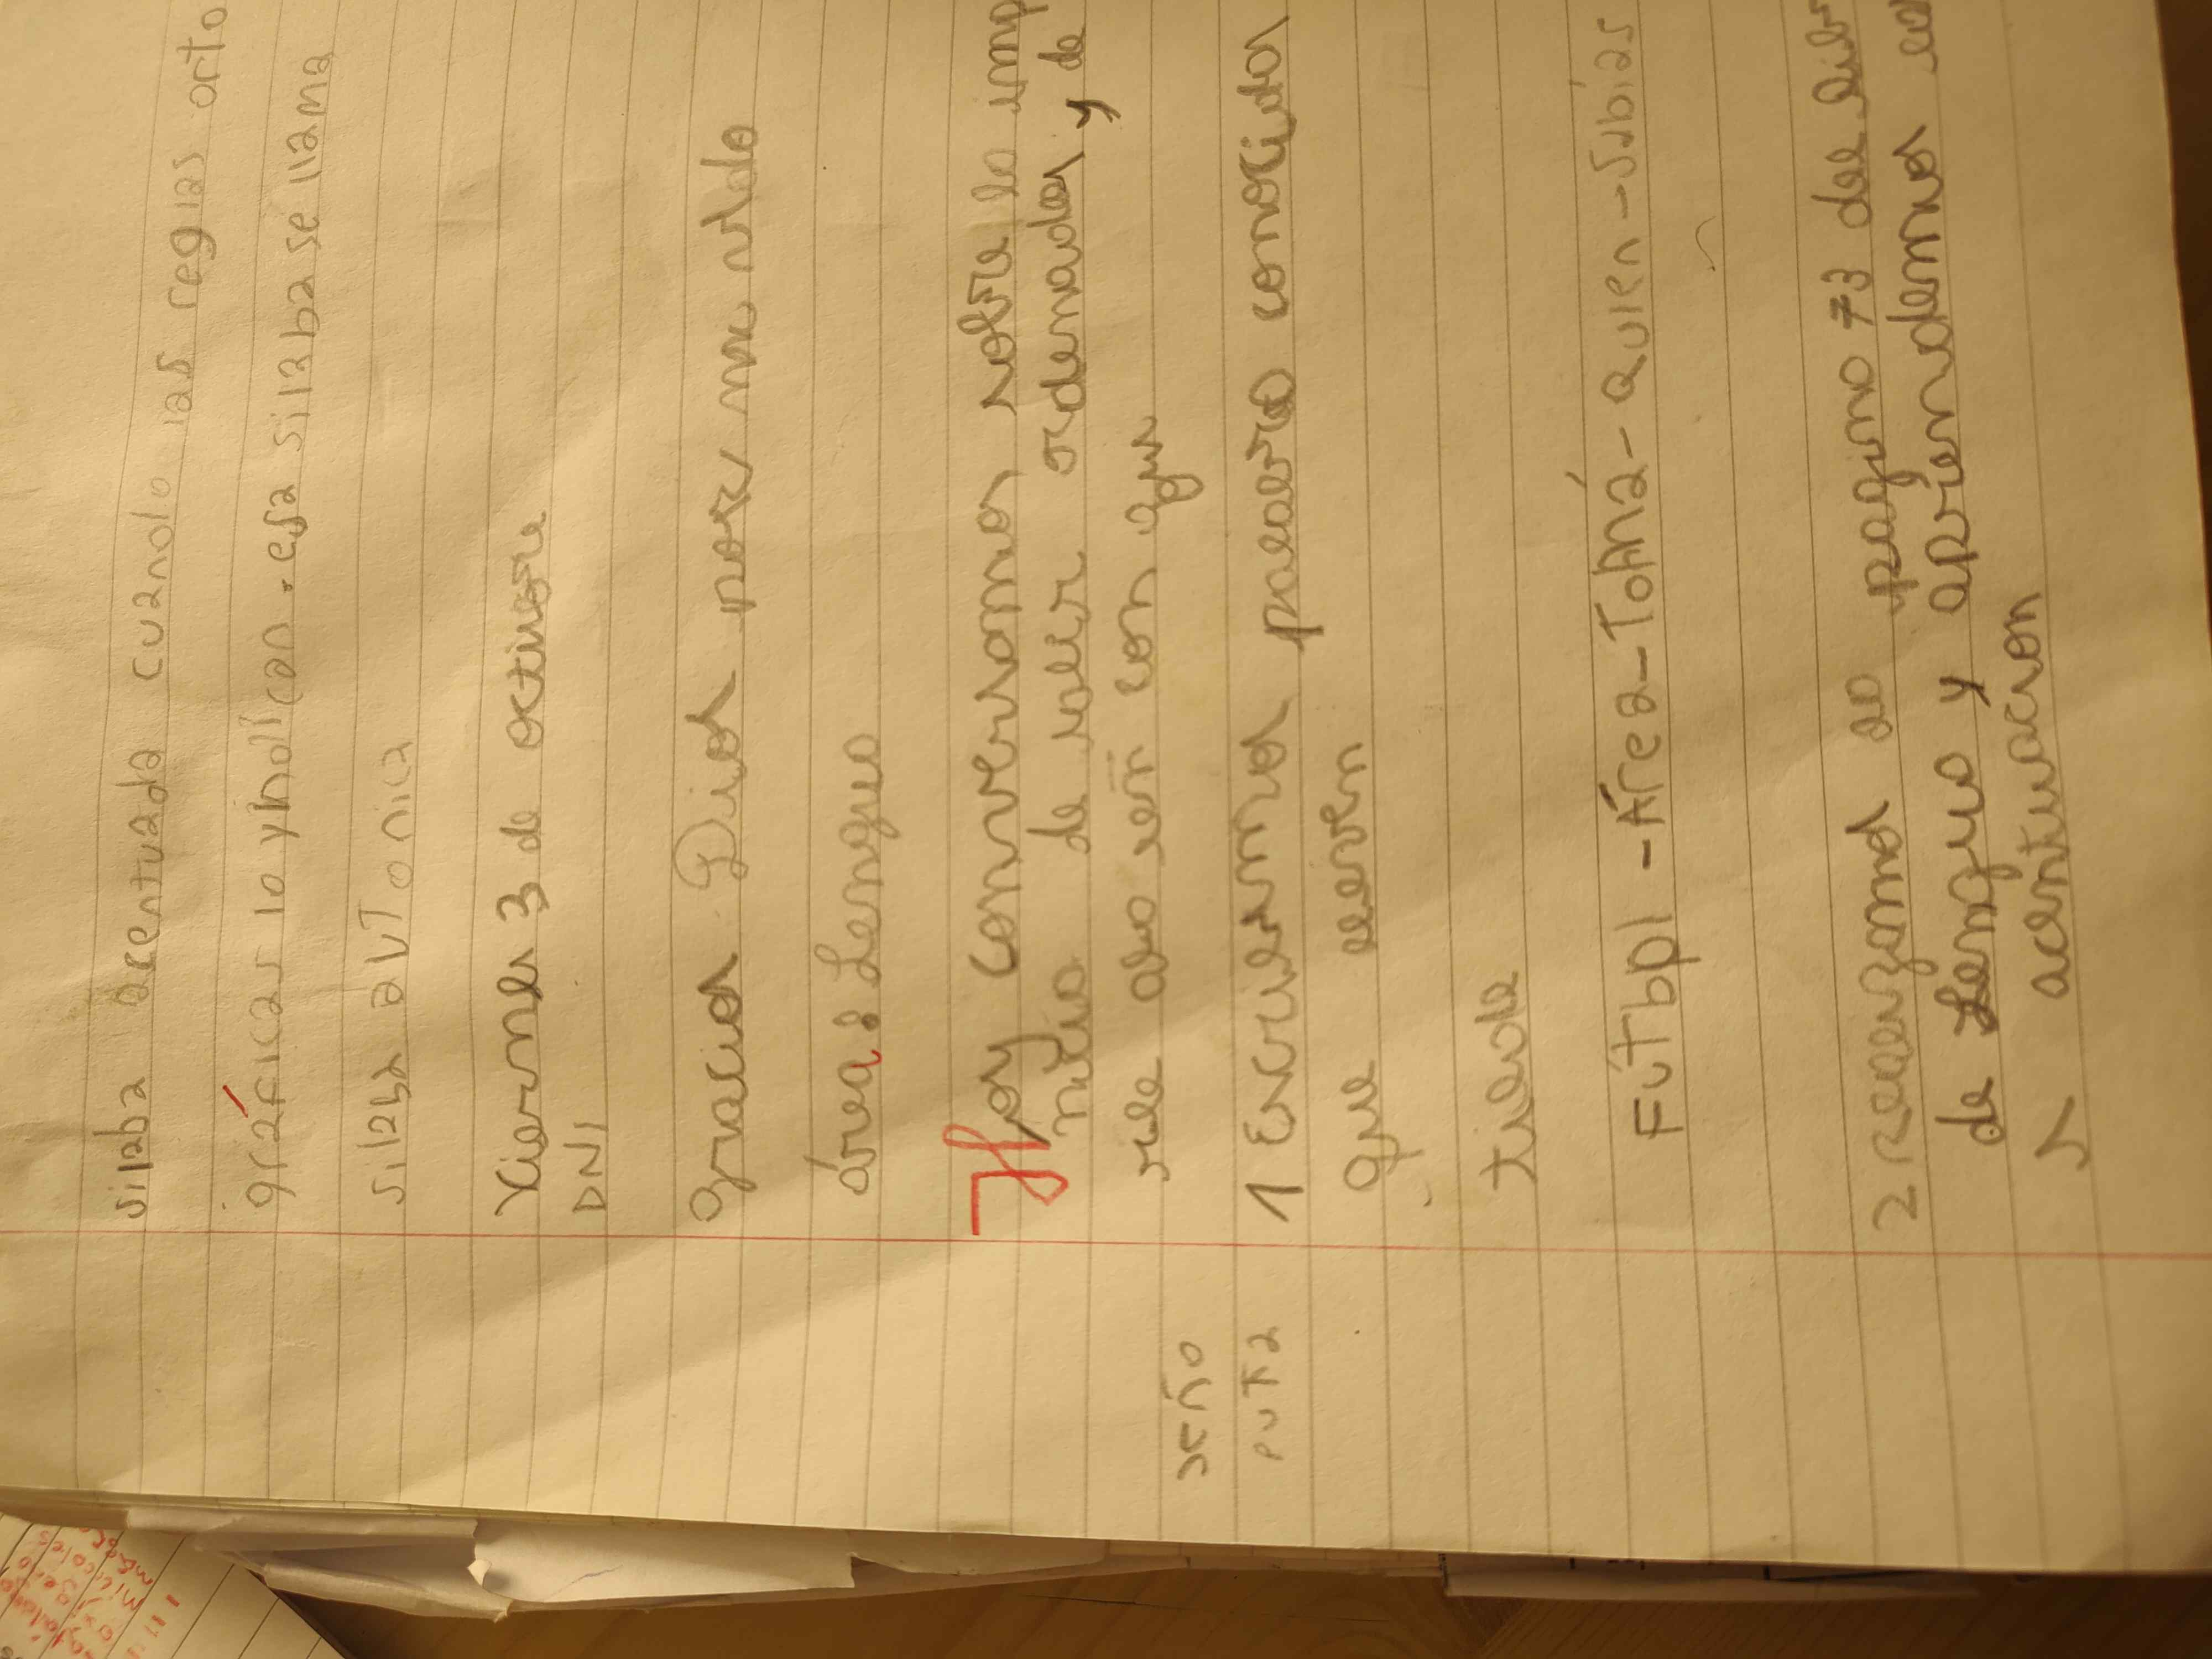 silaba acentuada cuando las reglas orto
gráficas lo yndican. esa silaba se llama
silaba avTonica
Viernes 3 de octubre
DNI
Gracias Dios por mi vida
área: Lengua
Hoy conversamos sobre la imp
de salir ordenados y de
con que
seño
puta
1 Escribimos palabra conocidas
que lleven
tilde
FúTbol - Área - Tomá - Quien - Subías
2 página 73 del libr
de Lengua y aprendemos
s acentuacion